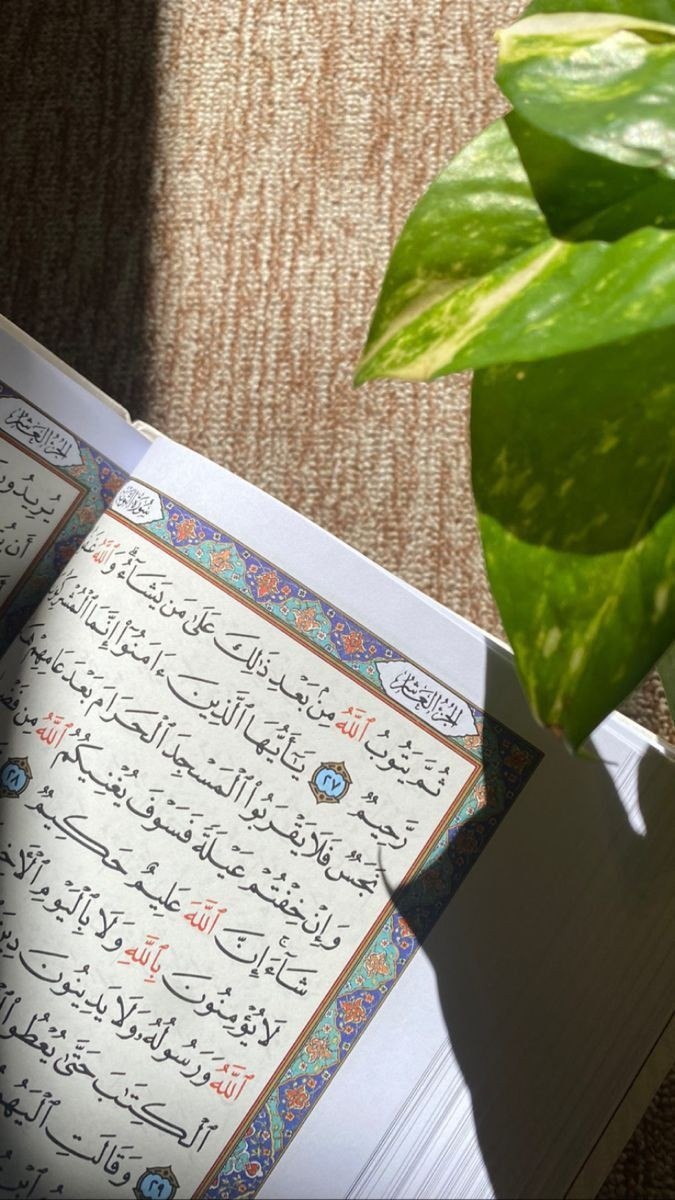 الجزء العاشر
يريدون
أن
سورة التوبة
الجزء العاشر
ثُمَّ يَتُوبُ ٱللَّهُ مِنۢ بَعْدِ ذَٰلِكَ عَلَىٰ مَن يَشَآءُۗ وَٱللَّهُ
رَّحِيمٌ ٢٧ يَٰٓأَيُّهَا ٱلَّذِينَ ءَامَنُوٓا۟ إِنَّمَا ٱلْمُشْرِكُونَ
نَجَسٌ فَلَا يَقْرَبُوا۟ ٱلْمَسْجِدَ ٱلْحَرَامَ بَعْدَ عَامِهِمْ
وَإِنْ خِفْتُمْ عَيْلَةً فَسَوْفَ يُغْنِيكُمُ ٱللَّهُ مِن
شَآءَۚ إِنَّ ٱللَّهَ عَلِيمٌ حَكِيمٌ ٢٨
لَا يُؤْمِنُونَ بِٱللَّهِ وَلَا بِٱلْيَوْمِ
ٱللَّهُ وَرَسُولُهُۥ وَلَا يَدِينُونَ
ٱلْكِتَٰبَ حَتَّىٰ يُعْطُوا۟
٢٩ وَقَالَتِ